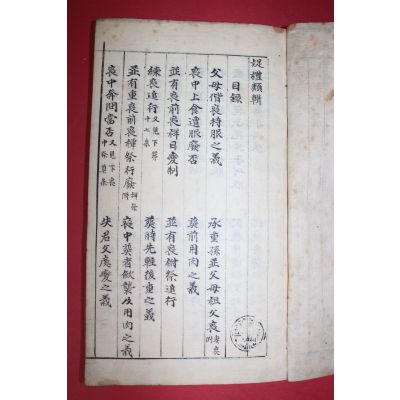 疑禮類輯
目錄
父母偕喪持服之義 承重孫並父母祖父喪妻喪附
喪中上食遣服廢否 葬前用肉之義
並有喪前喪祥日変制 並有喪祔祭追行
練喪追行又見下葬十七条 葬時先輕後重之義
並有重喪前喪禫祭行廢祥祭附 喪中葬者斂襲及用肉之義
喪中奔問當否又見下喪中祭奠条 失君父處変之義